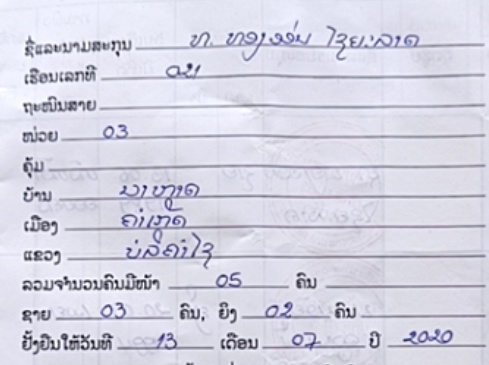 ຊື່ແລະນາມສະກຸນ ທ. ທອງເງິນ ໄຊຍະລາດ
ເຮືອນເລກທີ
ຖະໜົນສາຍ
ໜ່ວຍ 03
ຄຸ້ມ
ບ້ານ ນາຫາດ
ເມືອງ ຄຳເກີດ
ແຂວງ ບໍລິຄຳໄຊ
ລວມຈຳນວນຄົນມີໜ້າ 05 ຄົນ
ຊາຍ 03 ຄົນ, ຍິງ 02 ຄົນ
ຢັ້ງຢືນໃຫ້ວັນທີ 13 ເດືອນ 07 ປີ 2020